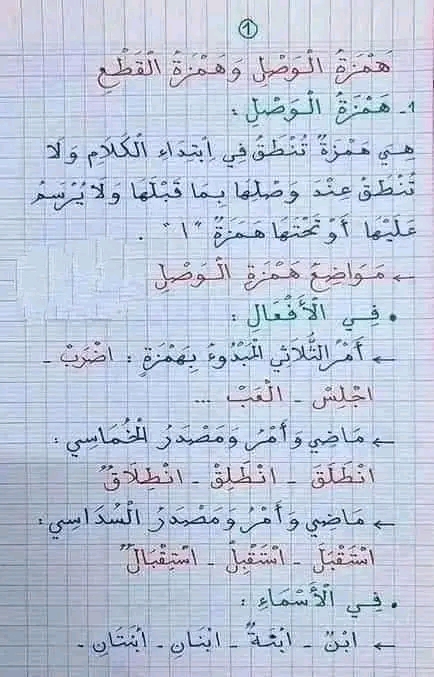 ①
هَمْزَةُ الْوَصْلِ وَهَمْزَةُ الْقَطْعِ
1- هَمْزَةُ الْوَصْلِ :
هِيَ هَمْزَةٌ تُنْطَقُ فِي اِبْتِدَاءِ الْكَلَامِ وَلَا
تُنْطَقُ عِنْدَ وَصْلِهَا بِمَا قَبْلَهَا وَلَا يُرْسَمُ
عَلَيْهَا أَوْ تَحْتَهَا هَمْزَةٌ "ا" .
← مَوَاضِعُ هَمْزَةِ الْوَصْلِ
• فِي الْأَفْعَالِ :
← أَمْرُ الثُّلَاثِي الْمَبْدُوءِ بِهَمْزَةٍ : اضْرَبْ -
اجْلِسْ - الْعَبْ ...
← مَاضِي وَأَمْرُ وَمَصْدَرُ الْخُمَاسِي :
انْطَلَقَ - انْطَلِقْ - انْطِلَاقٌ
← مَاضِي وَأَمْرُ وَمَصْدَرُ السُّدَاسِي :
اسْتَقْبَلَ - اسْتَقْبِلْ - اسْتِقْبَالٌ
• فِي الْأَسْمَاءِ :
← ابْنٌ - ابْنَةٌ - ابْنَانِ - ابْنَتَانِ -